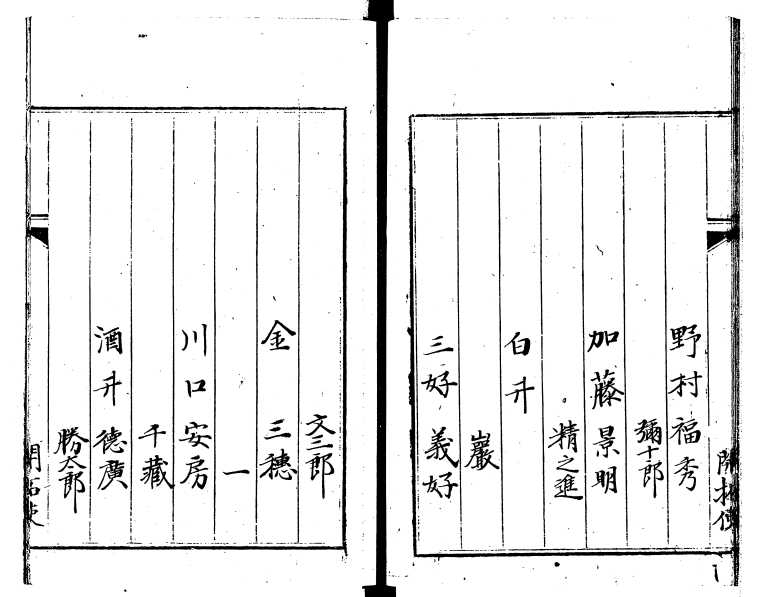 開拓使
野村福秀
彌十郎
加藤景明
精之進
白井
巖
三好義好
文三郎
金 三穗
一
川口安房
千藏
酒井德廣
勝太郎
開拓使